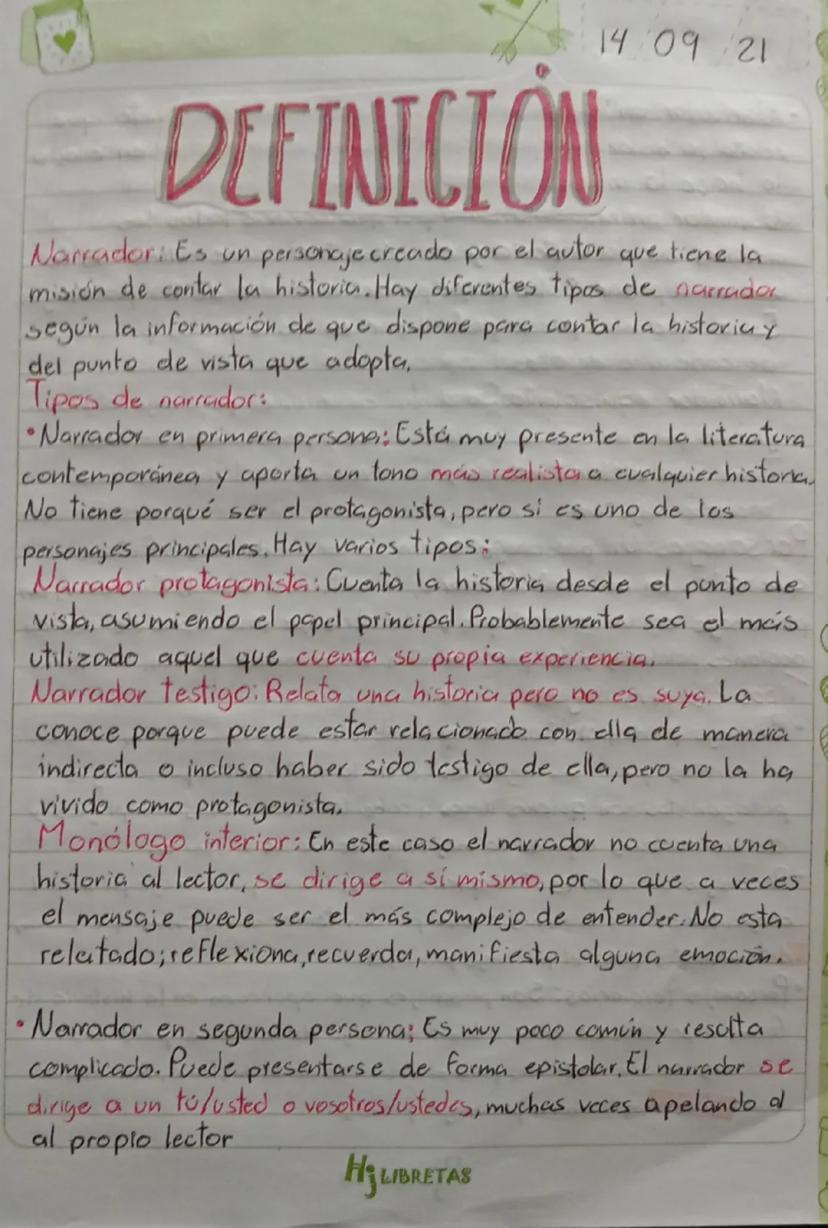 14 09 21
DEFINICIÓN
Narrador: Es un personaje creado por el autor que tiene la
misión de contar la historia. Hay diferentes tipos de narrador
según la información de que dispone para contar la historia y
del punto de vista que adopta.
Tipos de narrador:
• Narrador en primera persona: Está muy presente en la literatura
contemporánea y aporta un tono más realista a cualquier historia.
No tiene porqué ser el protagonista, pero si es uno de los
personajes principales. Hay varios tipos:
Narrador protagonista: Cuenta la historia desde el punto de
vista, asumiendo el papel principal. Probablemente sea el más
utilizado aquel que cuenta su propia experiencia.
Narrador testigo: Relata una historia pero no es suya. La
conoce porque puede estar relacionado con ella de manera
indirecta o incluso haber sido testigo de ella, pero no la ha
vivido como protagonista.
Monólogo interior: En este caso el narrador no cuenta una
historia al lector, se dirige a sí mismo, por lo que a veces
el mensaje puede ser el más complejo de entender. No esta
relatado; reflexiona, recuerda, manifiesta alguna emoción.
• Narrador en segunda persona: Es muy poco común y resulta
complicado. Puede presentarse de forma epistolar. El narrador se
dirige a un tú/usted o vosotros/ustedes, muchas veces apelando al
al propio lector
Hj LIBRETAS